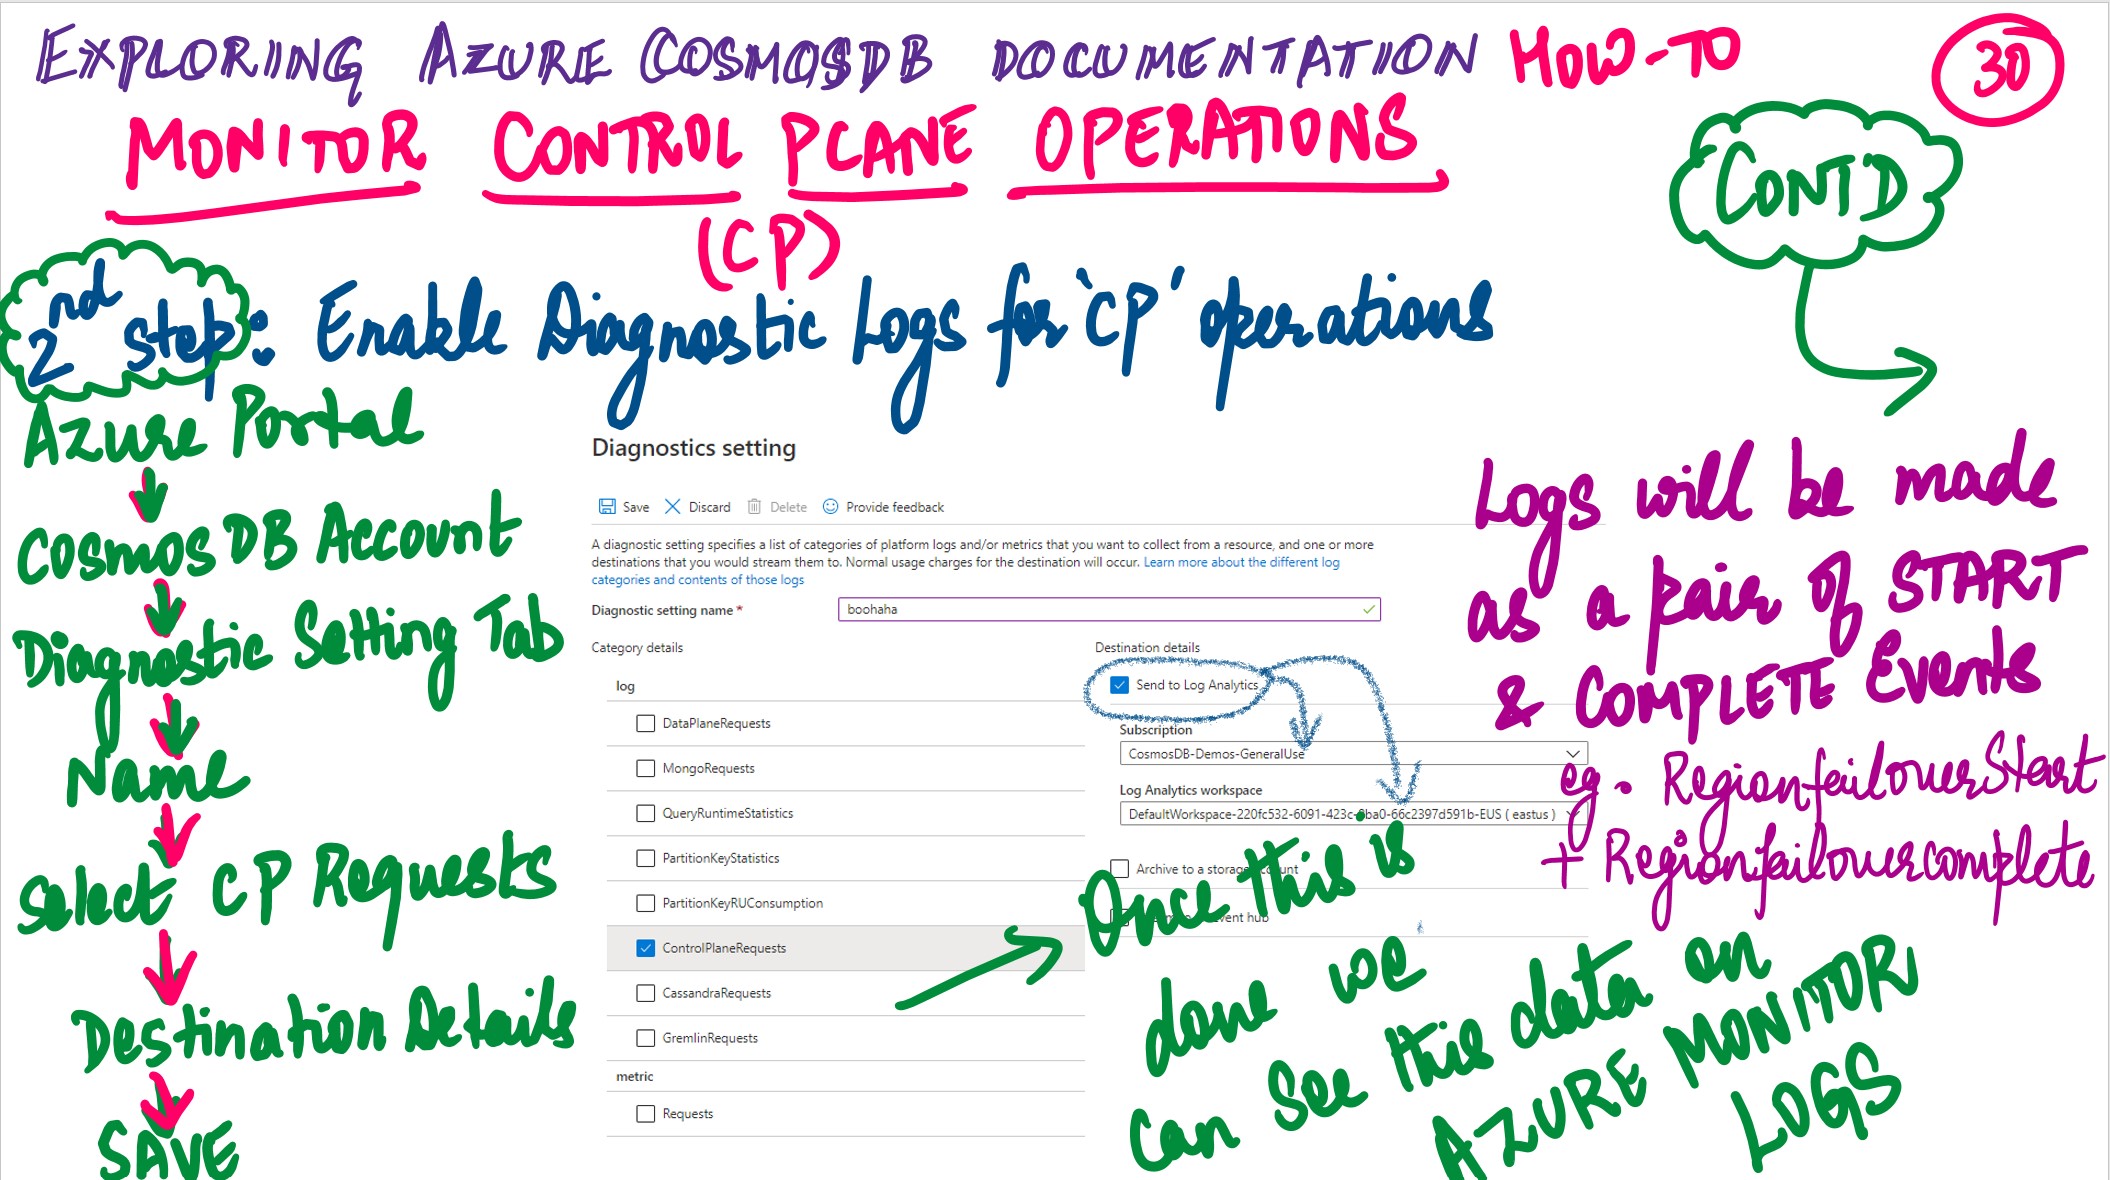 EXPLORING AZURE COSMOSDB DOCUMENTATION HOW-TO
30
MONITOR CONTROL PLANE OPERATIONS
(CP)
CONT'D
2nd step: Enable Diagnostic Logs for 'CP' operations
Azure Portal
CosmosDB Account
Diagnostic Setting Tab
Name
Select CP Requests
Destination Details
SAVE
Diagnostics setting
Save Discard Delete Provide feedback
A diagnostic setting specifies a list of categories of platform logs and/or metrics that you want to collect from a resource, and one or more
destinations that you would stream them to. Normal usage charges for the destination will occur. Learn more about the different log
categories and contents of those logs
Diagnostic setting name * boohaha
Category details
log
DataPlaneRequests
MongoRequests
QueryRuntimeStatistics
PartitionKeyStatistics
PartitionKeyRUConsumption
ControlPlaneRequests
CassandraRequests
GremlinRequests
metric
Requests
Destination details
Send to Log Analytics
Subscription
CosmosDB-Demos-GeneralUse
Log Analytics workspace
( eastus )
Archive to a storage
hub
Once this is
done we
can see this data on
AZURE MONITOR
LOGS
Logs will be made
as a pair of START
& COMPLETE Events
eg. RegionfailoverStart
+ Regionfailovercomplete